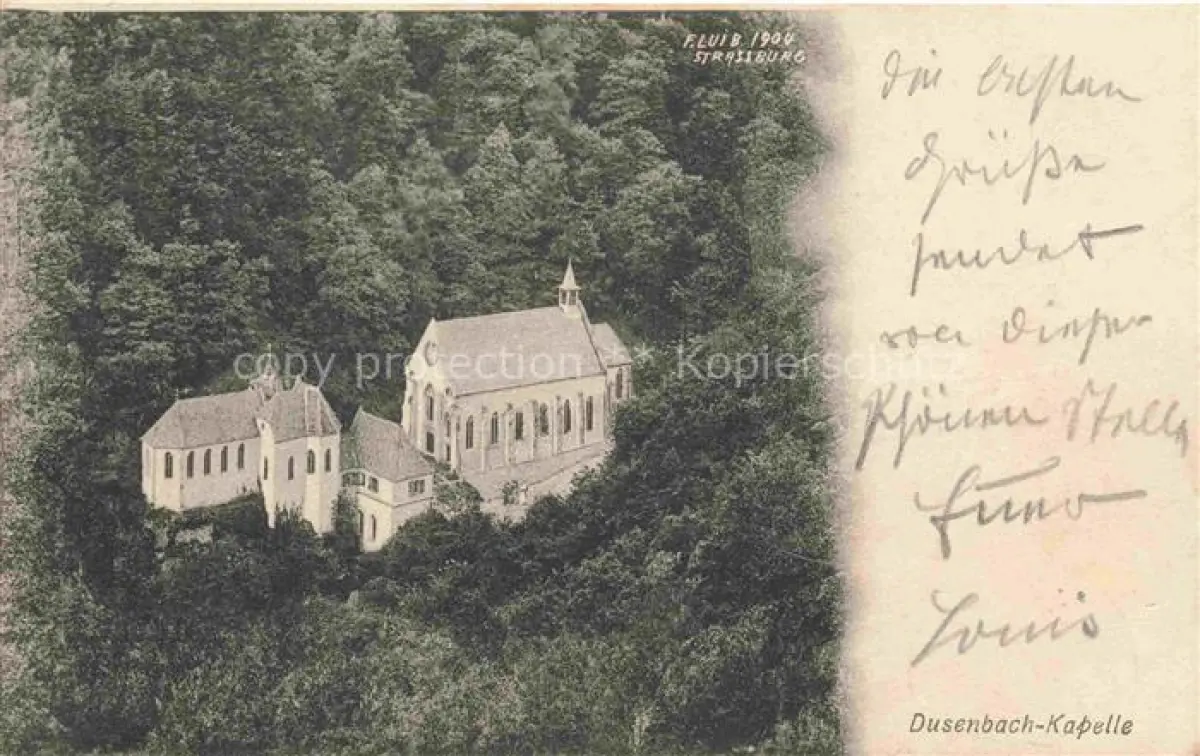 F. LUIB 1904
STRASSBURG
die ersten
Grüße
sendet
von dieser
schönen Stelle
Euer
Louis
copy protection * Kopierschutz
Dusenbach-Kapelle